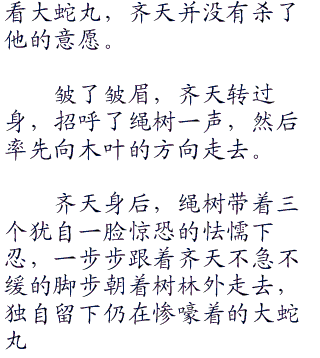 看大蛇丸，齐天并没有杀了
他的意愿。
皱了皱眉，齐天转过
身，招呼了绳树一声，然后
率先向木叶的方向走去。
齐天身后，绳树带着三
个犹自一脸惊恐的怯懦下
忍，一步步跟着齐天不急不
缓的脚步朝着树林外走去，
独自留下仍在惨嚎着的大蛇
丸